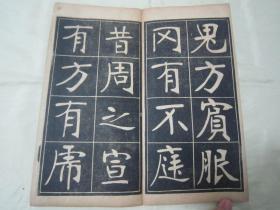 鬼方賓服
罔有不庭
昔周之宣
有方有虎